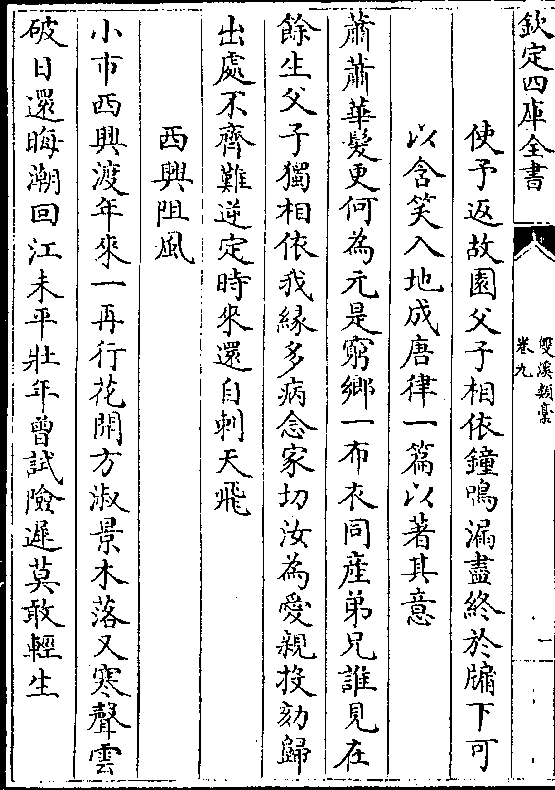 欽定四庫全書
雙溪類稾
卷九
一
使予返故園父子相依鐘鳴漏盡終於牖下可
以含笑入地成唐律一篇以著其意
蕭蕭華髮更何為元是窮鄉一布衣同産弟兄誰見在
餘生父子獨相依我縁多病念家切汝為愛親投劾歸
出處不齊難逆定時來還自刺天飛
西興阻風
小市西興渡年來一再行花開方淑景木落又寒聲雲
破日還晦潮回江未平壯年曽試險遲莫敢輕生